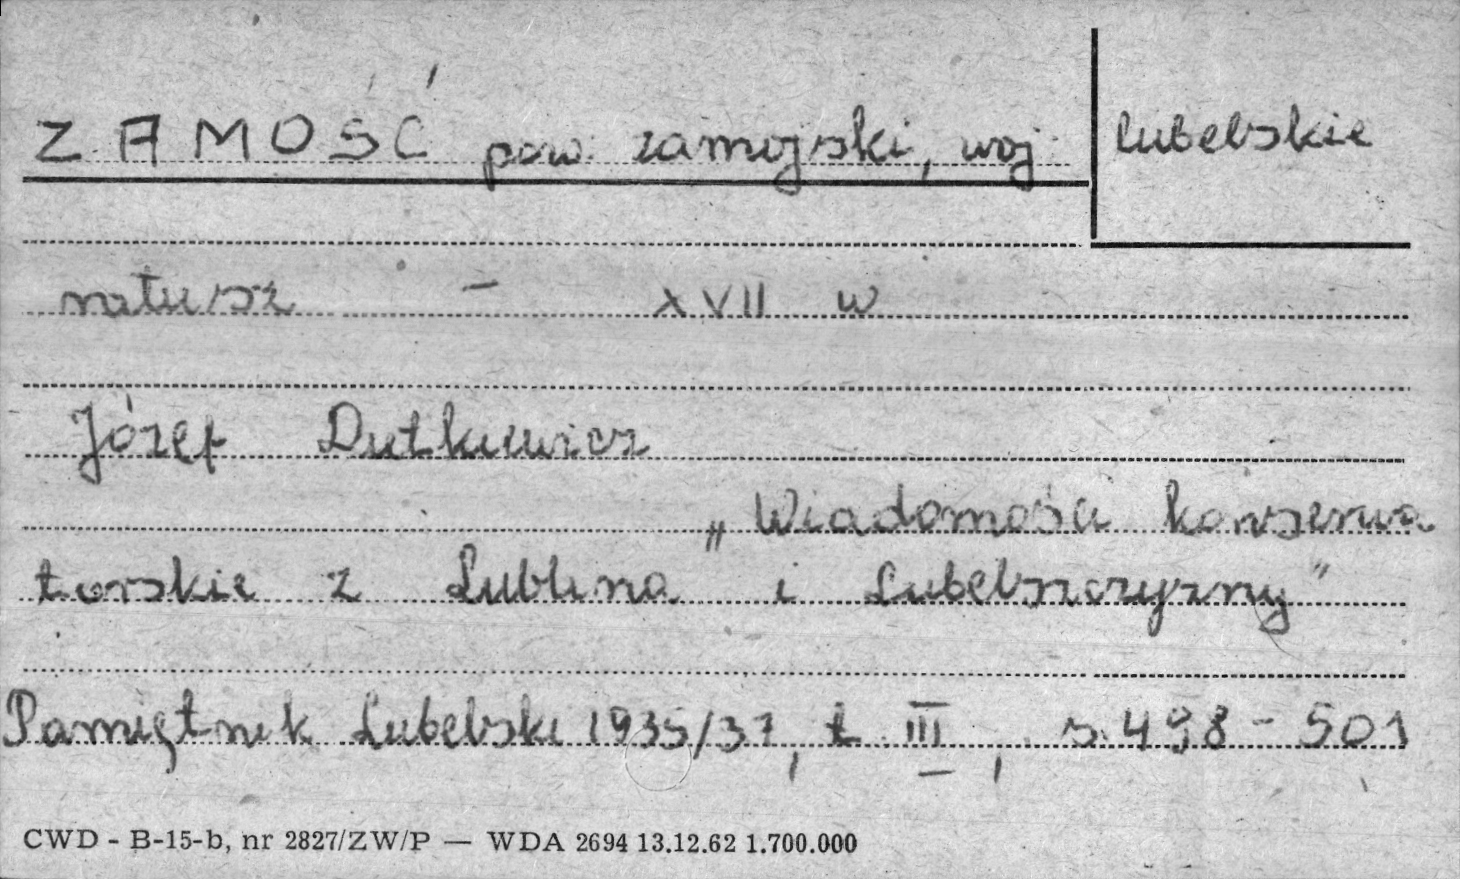 ZAMOŚĆ pow. zamojski, woj. lubelskie
ratusz – XVII w
Józef Dutkiewicz
„Wiadomości konserwa
torskie z Lublina i Lubelszczyzny"
Pamiętnik Lubelski 1935/37, t. III, s. 498-501
CWD - B-15-b, nr 2827/ZW/P — WDA 2694 13.12.62 1.700.000